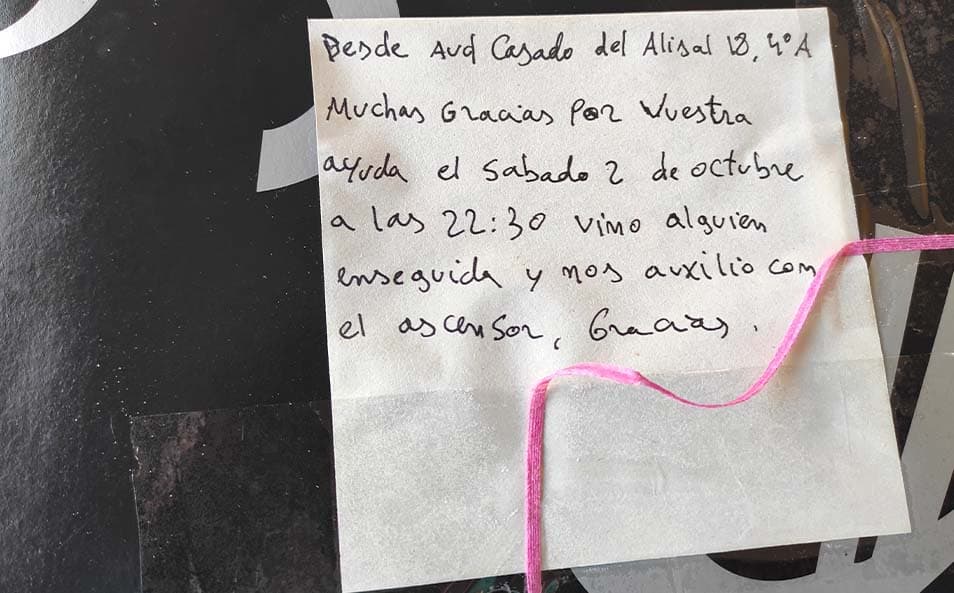 Desde Avd Casado del Alisal 18, 4º A
Muchas Gracias por Vuestra
ayuda el sabado 2 de octubre
a las 22:30 vino alguien
enseguida y nos auxilio con
el ascensor, Gracias.